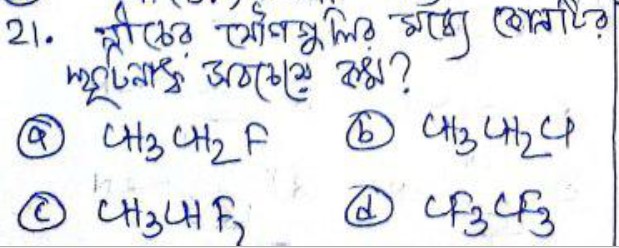 21. নীচের যৌগগুলির মধ্যে কোনটির
স্ফুটনাঙ্ক সবচেয়ে কম?
ⓐ CH3CH2F ⓑ CH3CH2Cl
ⓒ CH3CHF2 ⓓ CF3CF3